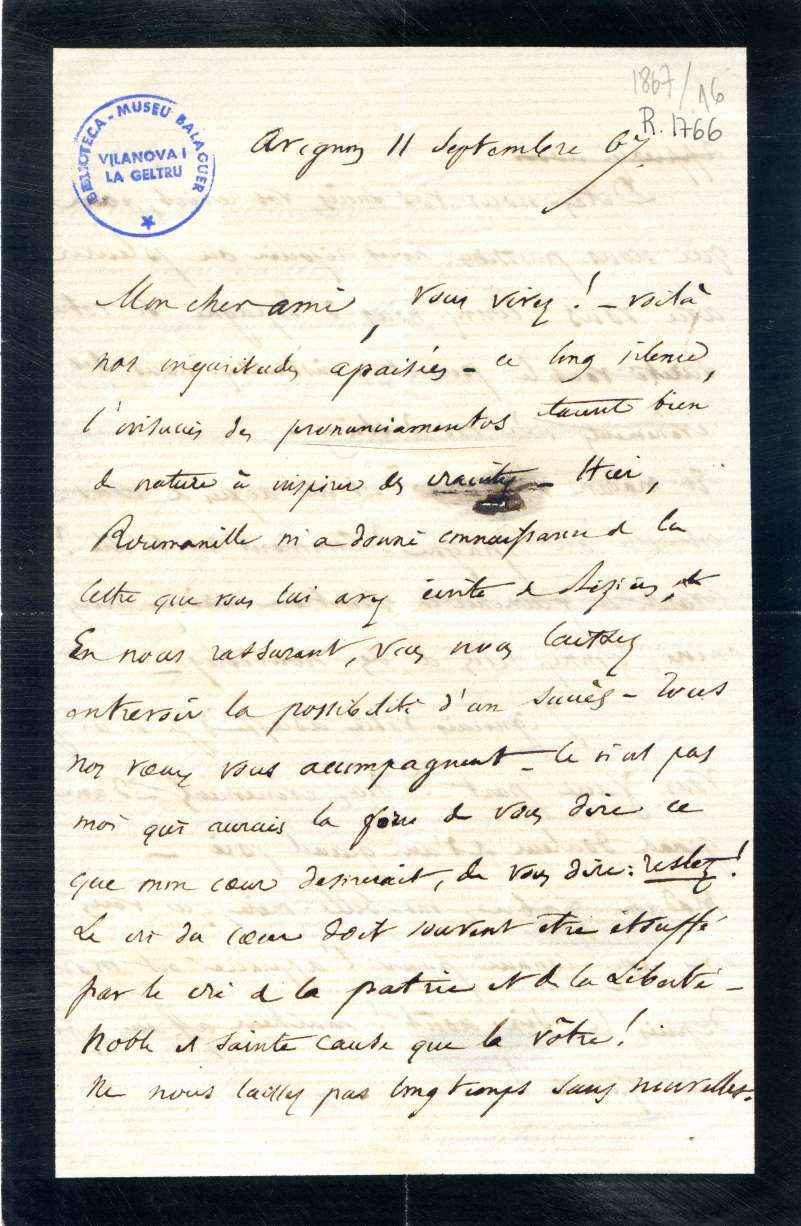 1867/16
R. 1766
BIBLIOTECA - MUSEU BALAGUER
VILANOVA I
LA GELTRU
Avignon 11 Septembre 67
Mon cher ami, vous vivez ! – voilà
nos inquiétudes apaisées – ce long silence,
l'insuccès des pronunciamentos étaient bien
de nature à inspirer des craintes – Hier,
Roumanille m'a donné connaissance de la
lettre que vous lui avez écrite de Béziers,
En nous rassurant, vous nous laissez
entrevoir la possibilité d'un succès – Tous
nos vœux vous accompagnent – Ce n'est pas
moi qui aurais la force de vous dire ce
que mon cœur desirerait, de vous dire : restez !
Le cri du cœur doit souvent être étouffé
par le cri de la patrie et de la Liberté –
Noble et sainte cause que la vôtre !
Ne nous laissez pas longtemps sans nouvelles.